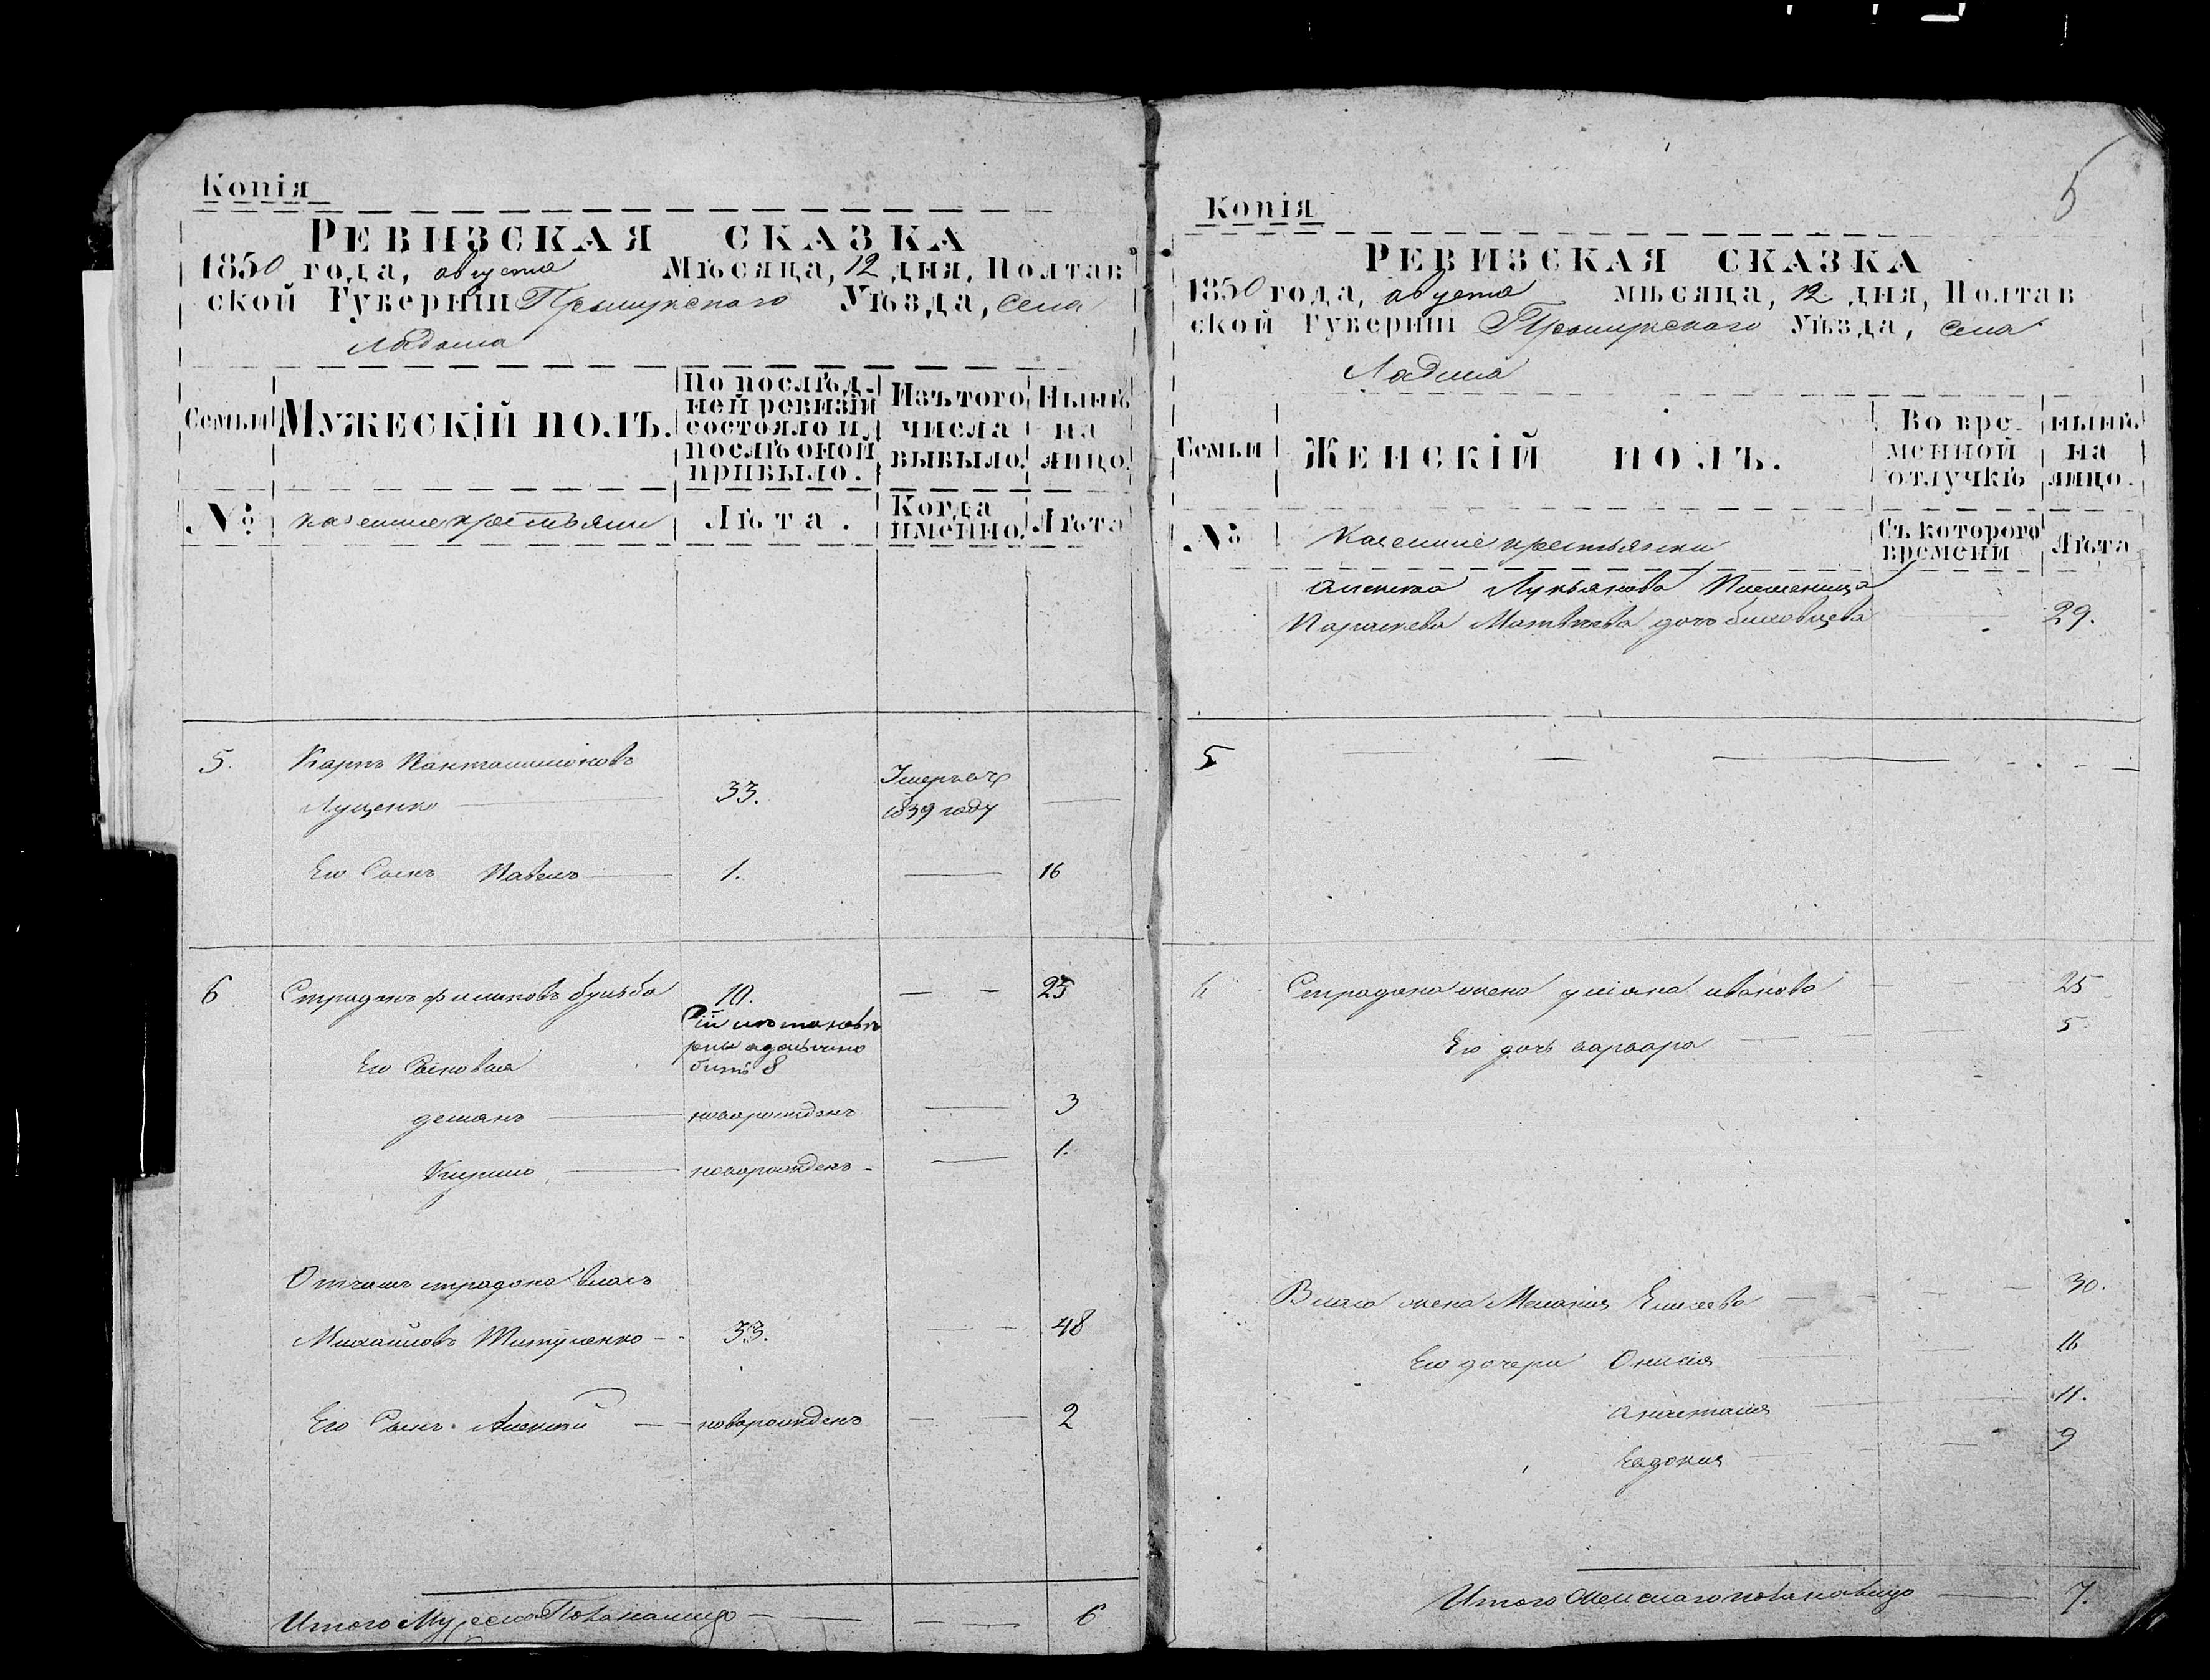 Копія
РЕВИЗСКАЯ СКАЗКА
1850 года, августа Мѣсяца, 12 дня, Полтав
ской Губерніи Прилукского Уѣзда, села
Ладина
Семьи
МУЖЕСКІЙ ПОЛЪ.
По послѣд-
ней ревизіи
состояло и
послѣ оной
прибыло.
Изъ того
числа
выбыло.
Нынѣ
на
лицо.
№
казенние крестьяни
Лѣта.
Когда
именно.
Лѣта
5. Карпъ Пантелимоновъ
Луценко 33. Умеръ въ
1839 году
Его Сынъ Павелъ 1. 16
6 бульба 10. 25
Его Сыновья
быть 8
демянъ новорожденъ 3
Кирило новорожденъ 1.
Отчимъ Власъ
Михайловъ Титуленко 33. 48
Его Сынъ Алексей новорожденъ 2
Итого Налицо 6
5
Копія
РЕВИЗСКАЯ СКАЗКА
1850 года, августа мѣсяца, 12 дня, Полтав
ской Губерніи Прилукского Уѣзда, села
Ладина
Семьи
ЖЕНСКІЙ ПОЛЪ.
Во вре-
менной
отлучкѣ
нынѣ
на
лицо.
№
Казенние крестьянки
Съ которого
времени
Лѣта
Лукьянова Племеница
Параскева Матвѣева дочь 29.
5
6 жена уліяна иванова 25
Его дочь варвара 5
Власа жена Меланія Елисеева 30.
Его дочери Онисія 16
анастасія 11.
Евдокия 9
Итого Женскаго пола налицо 7.